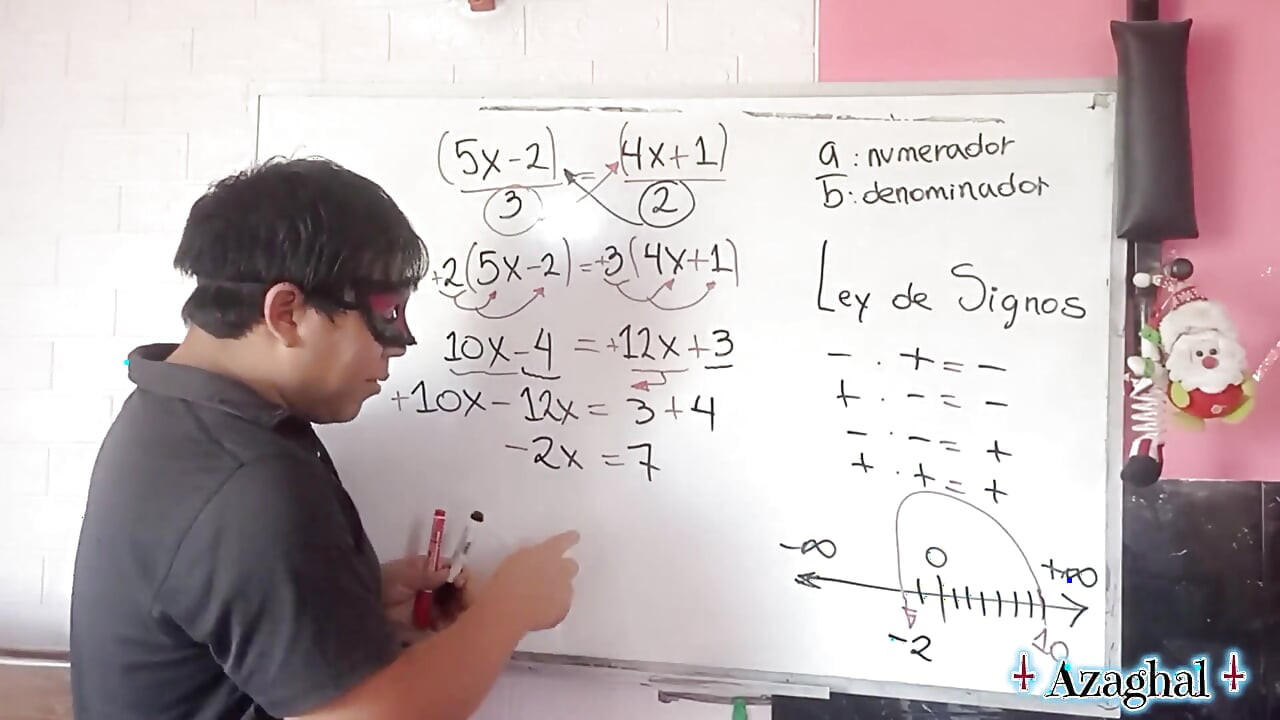 (5x-2) = (4x+1)
3 2
+2(5x-2)=+3(4x+1)
10x-4 = +12x+3
+10x-12x= 3+4
-2x = 7
a : numerador
b : denominador
Ley de Signos
- · + = -
+ · - = -
- · - = +
+ · + = +
-∞ 0 +∞
-2 10
Azaghal